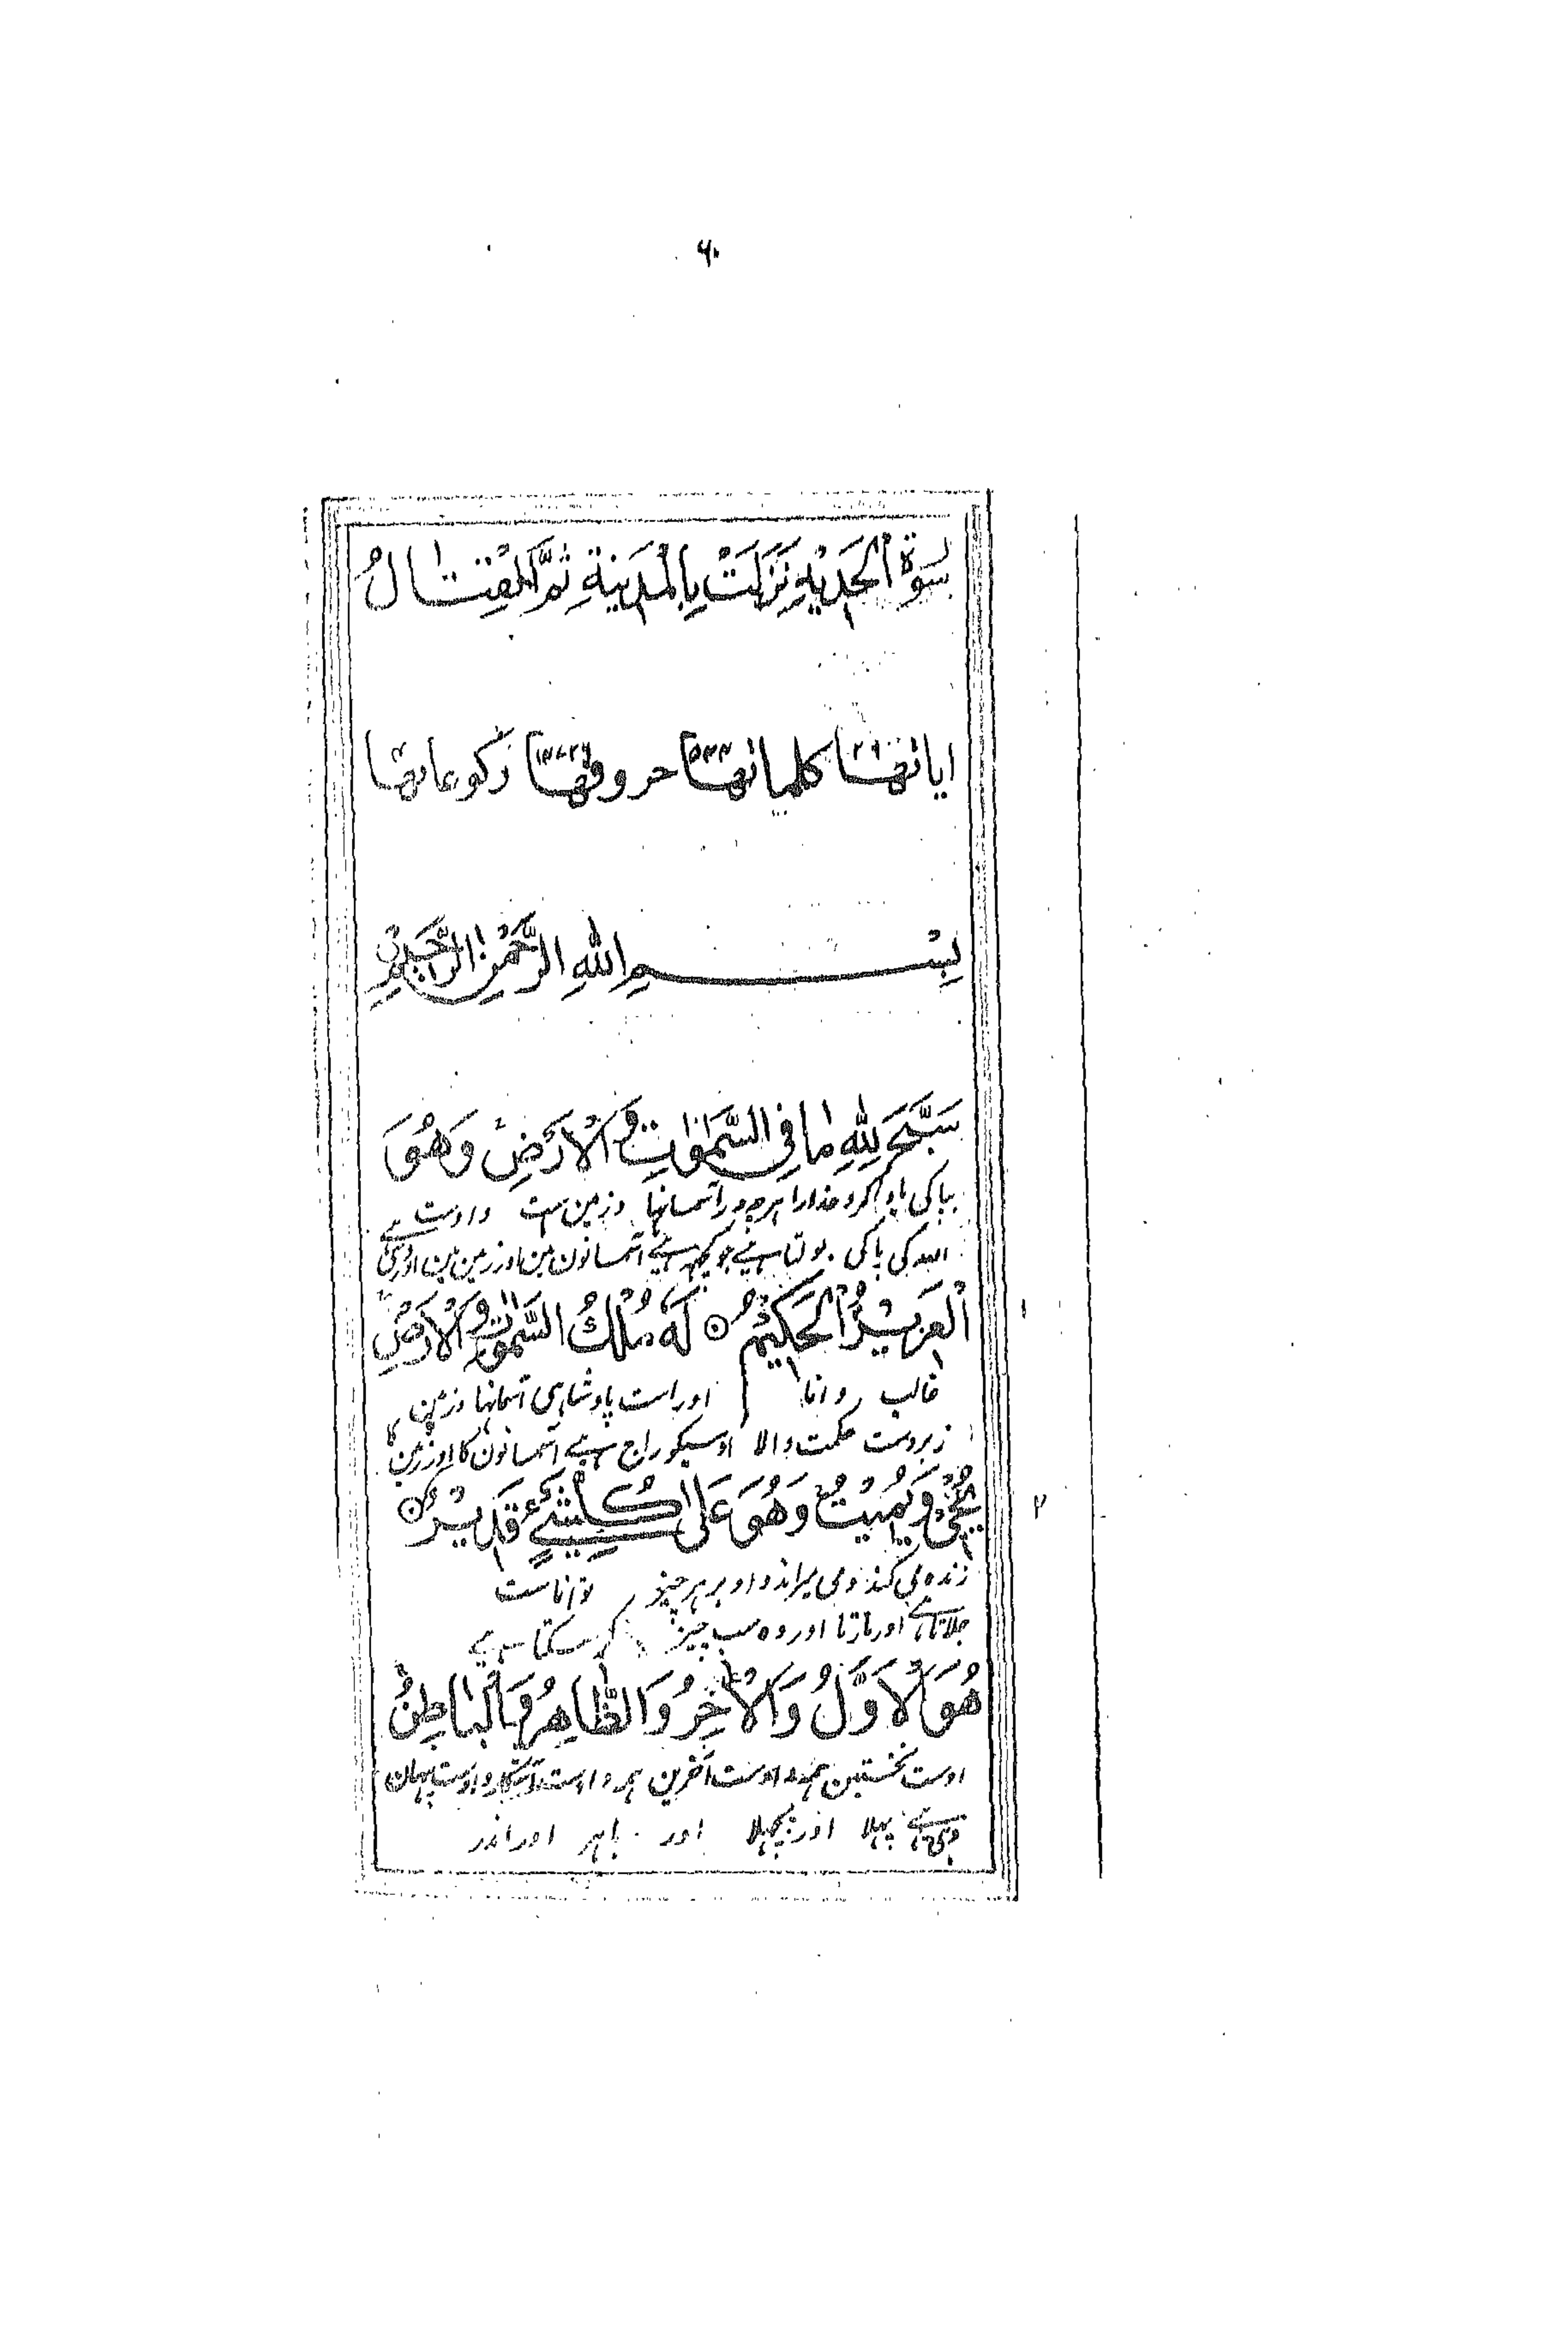 ۶۰
سورة الحديد نزلت بالمدينة ثم القتال
اياتها ۲۹ كلماتها ۵۴۴ حروفها ركوعاتها ۴
بِسْمِ اللهِ الرَّحْمٰنِ الرَّحِيْمِ
سَبَّحَ لِلّٰهِ مَا فِي السَّمٰوٰتِ وَالْاَرْضِ وَهُوَ
بپاکی یاد کرد خدا را هرچه در آسمانها و زمین ست و اوست
الله کی پاکی بولتا ہے جو کچھ ہے آسمانون مین اور زمین مین اور وہی ہے
الْعَزِيْزُ الْحَكِيْمُ ۝ لَهٗ مُلْكُ السَّمٰوٰتِ وَالْاَرْضِ
۱
غالب دانا اوراست پادشاهی آسمانها و زمین
زبردست حکمت والا اوسیکو راج ہے آسمانون کا اور زمین کا
يُحْيٖ وَيُمِيْتُ وَهُوَ عَلٰى كُلِّ شَيْءٍ قَدِيْرٌ ۝
۲
زنده می کند و می میراند و او بر هر چیز تواناست
جلاتا ہے اور مارتا اور وہ سب چیز کر سکتا ہے
هُوَ الْاَوَّلُ وَالْاٰخِرُ وَالظَّاهِرُ وَالْبَاطِنُ
اوست نخستین همه و اوست آخرین همه و اوست آشکار و اوست پنهان
وہی ہے پہلا اور پچھلا اور باہر اور اندر